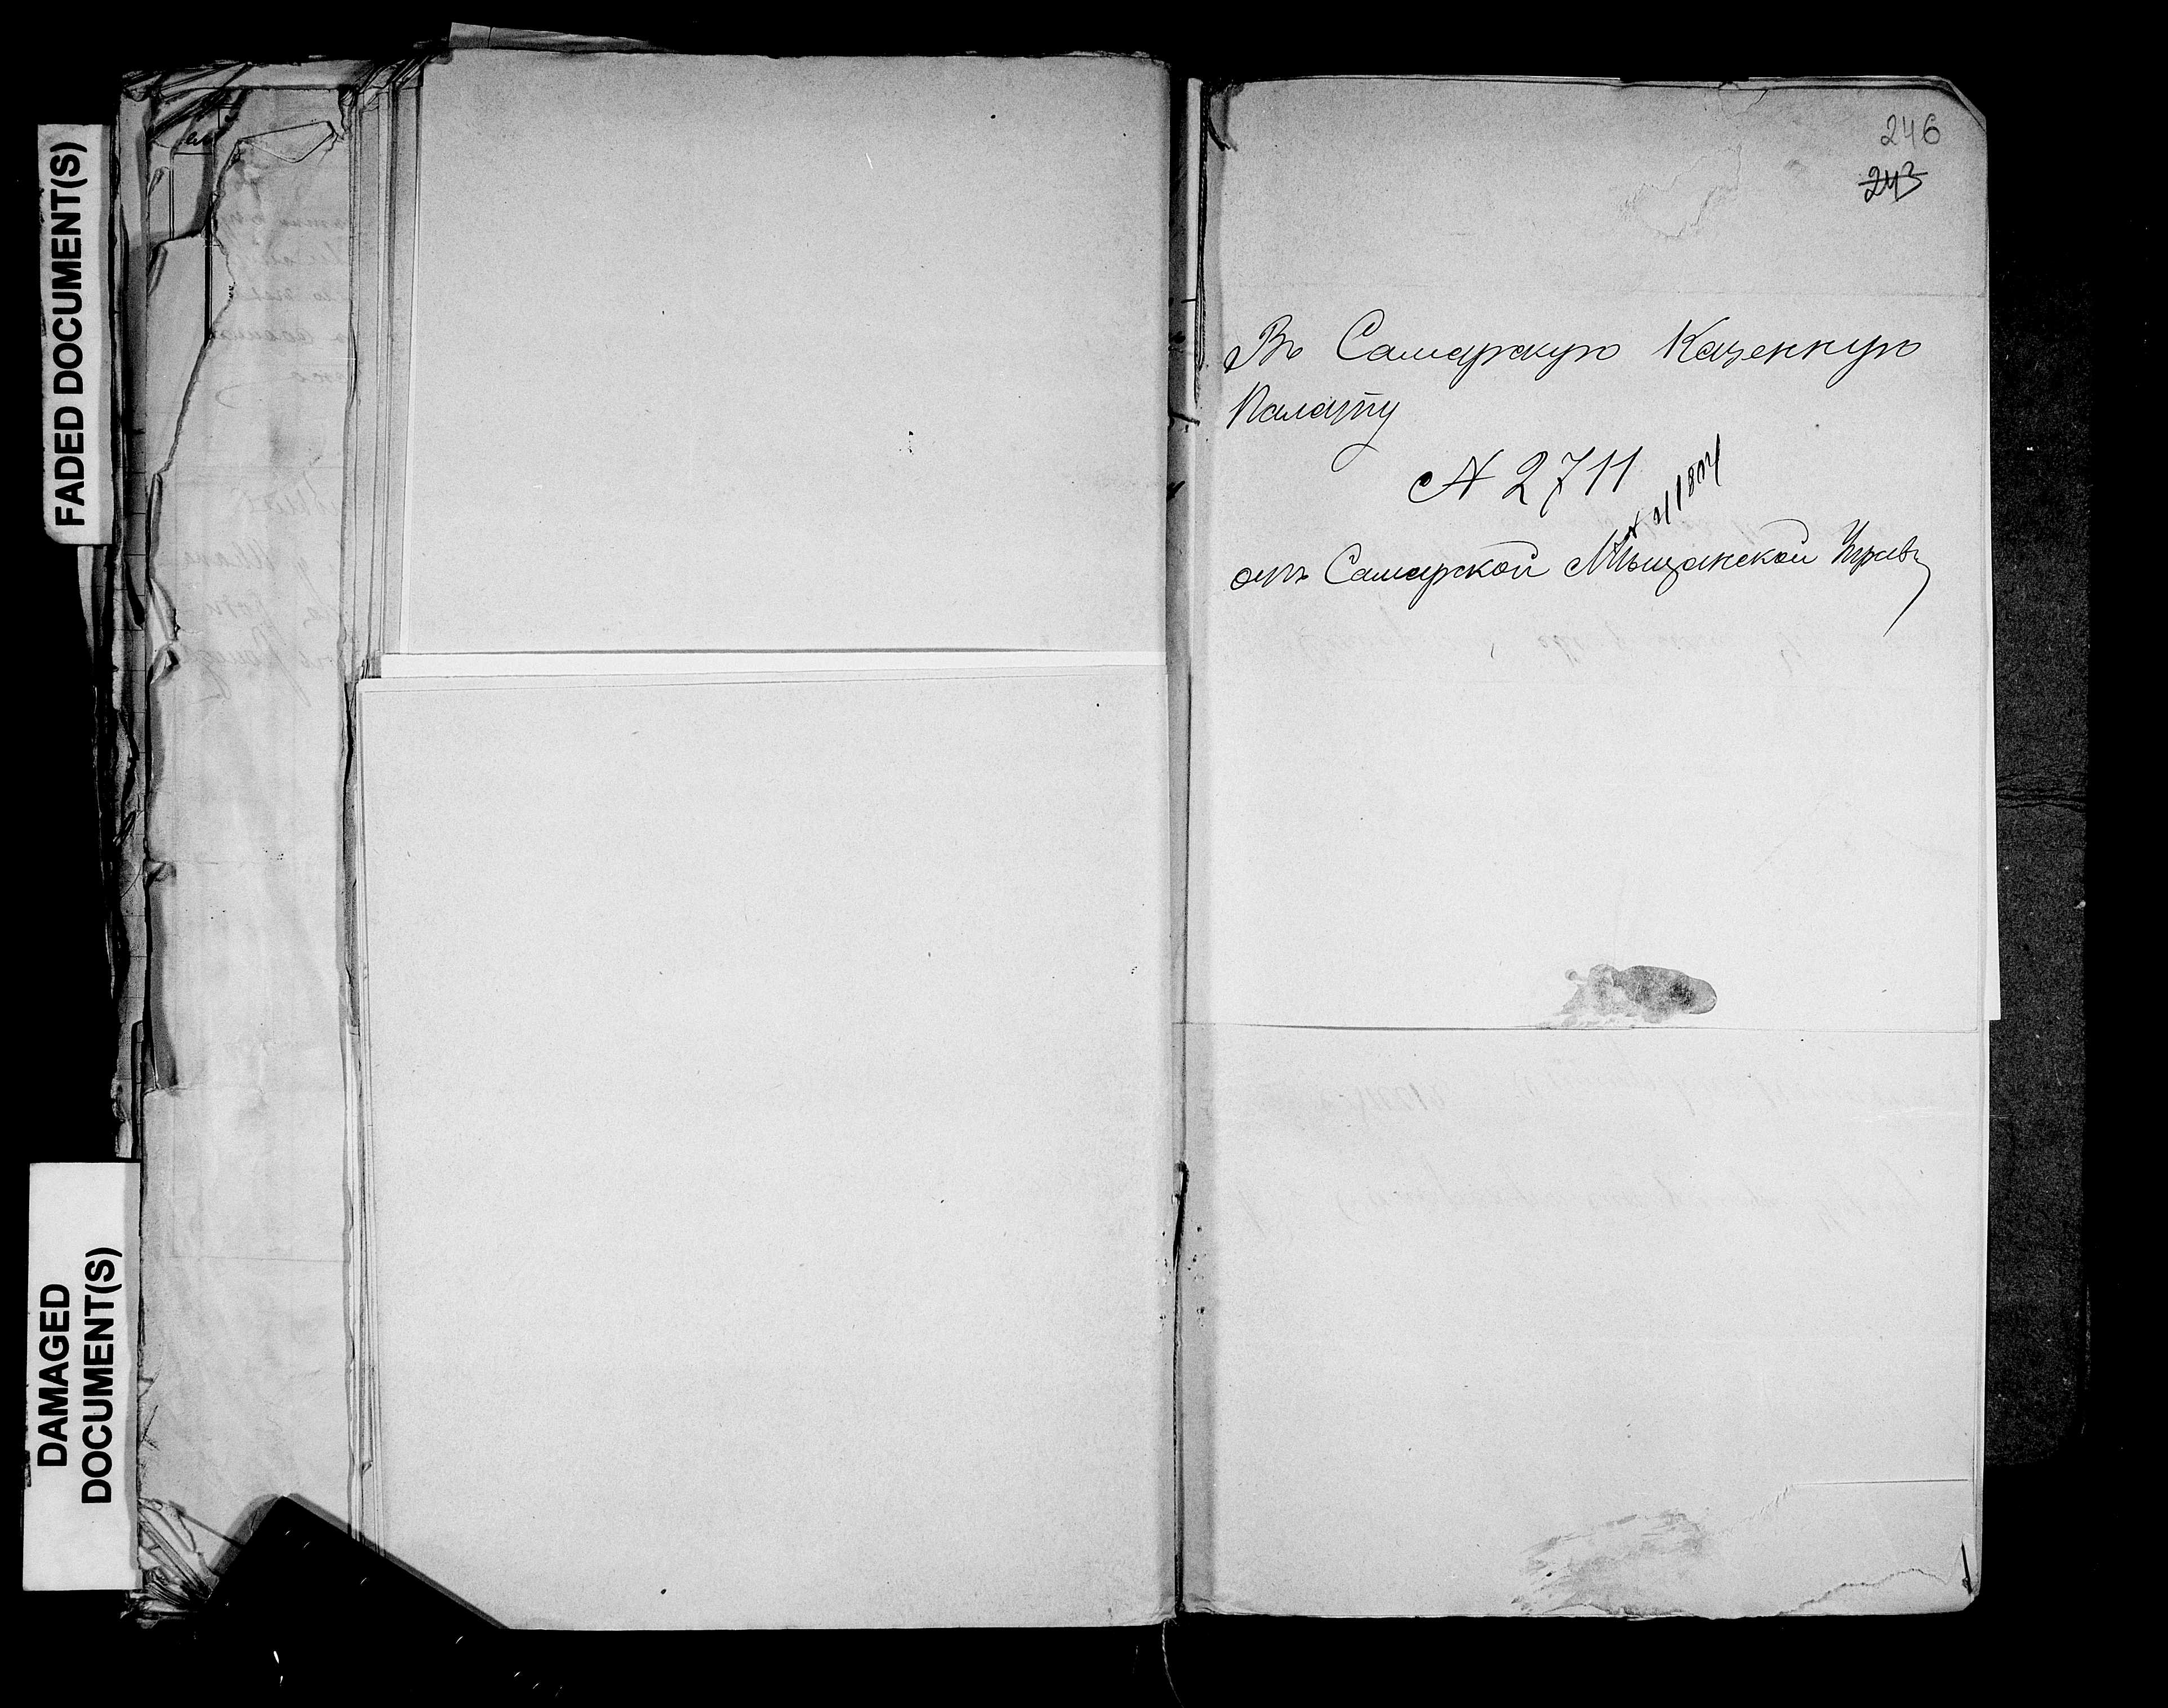 FADED DOCUMENT(S)
DAMAGED
DOCUMENT(S)
246
243
Въ Самарскую Казенную
Палату
№ 2711
отъ Самарской Мѣщанской Управы